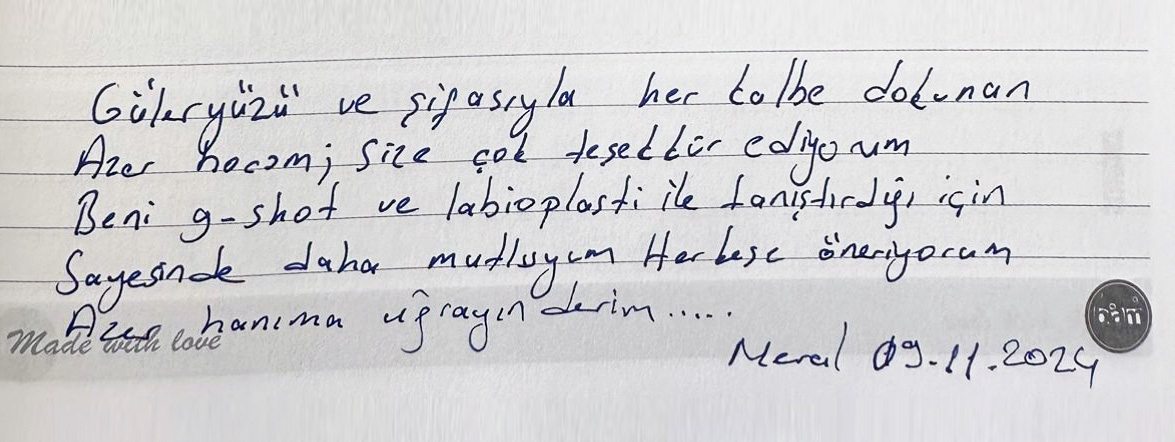 Güleryüzü ve şifasıyla her kalbe dokunan
Azer hocam; size çok teşekkür ediyorum
Beni g-shot ve labioplasti ile tanıştırdığı için
Sayesinde daha mutluyum Herkese öneriyorum
Azer hanıma uğrayın derim.....
Made with love
Meral 09.11.2024